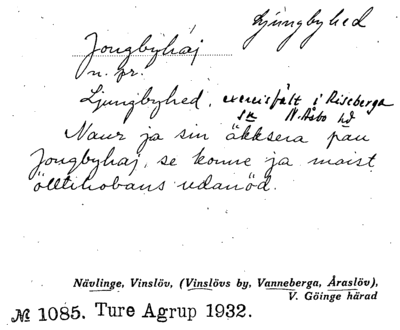 Ljungbyhed
Jongbyhaj
n. pr.
Ljungbyhed, exercisfält i Riseberga
sn N. Åsbo hd
Naur ja sin äkksera påu
Jongbyhaj, se konne ja maist
udanöd.
Nävlinge, Vinslöv, (Vinslövs by, Vanneberga, Åraslöv),
V. Göinge härad
№ 1085. Ture Agrup 1932.